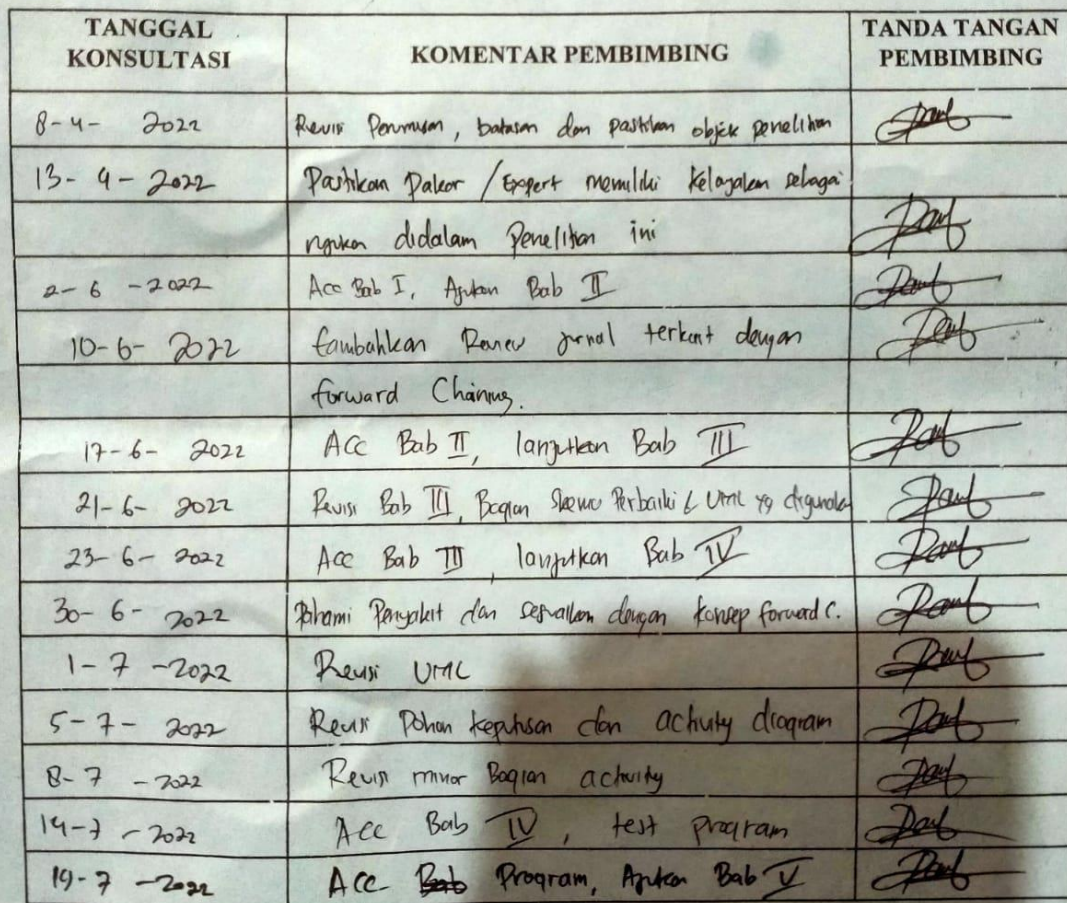 TANGGAL KONSULTASI KOMENTAR PEMBIMBING TANDA TANGAN PEMBIMBING
8-4- 2022 Revisi Perumusan, batasan dan pastikan objek penelitian
13-4-2022 Pastikan Pakar / Expert memiliki kelayakan sebagai
didalam Penelitian ini
2-6-2022 Acc Bab I, Ajukan Bab II
10-6-2022 tambahkan Review jurnal terkait dengan
forward Chaining.
17-6-2022 ACC Bab II, lanjutkan Bab III
21-6-2022 Revisi Bab III, Bagian Perbaiki & UML yg digunakan
23-6-2022 Acc Bab III, lanjutkan Bab IV
30-6-2022 Pahami Penyakit dan sesuaikan dengan konsep forward C.
1-7-2022 Revisi UML
5-7-2022 Revisi Pohon keputusan dan activity diagram
8-7-2022 Revisi minor Bagian activity
14-7-2022 Acc Bab IV, test program
19-7-2022 Acc Program, Ajukan Bab V